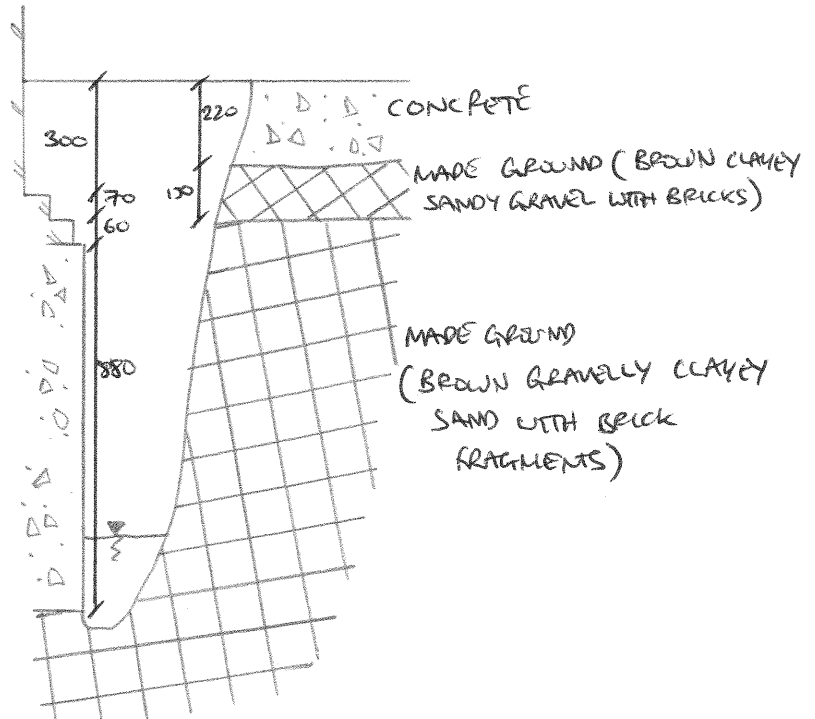 220
CONCRETE
300
MADE GROUND (BROWN CLAYEY
SANDY GRAVEL WITH BRICKS)
70
60
MADE GROUND
(BROWN GRAVELLY CLAYEY
SAND WITH BRICK
FRAGMENTS)
880